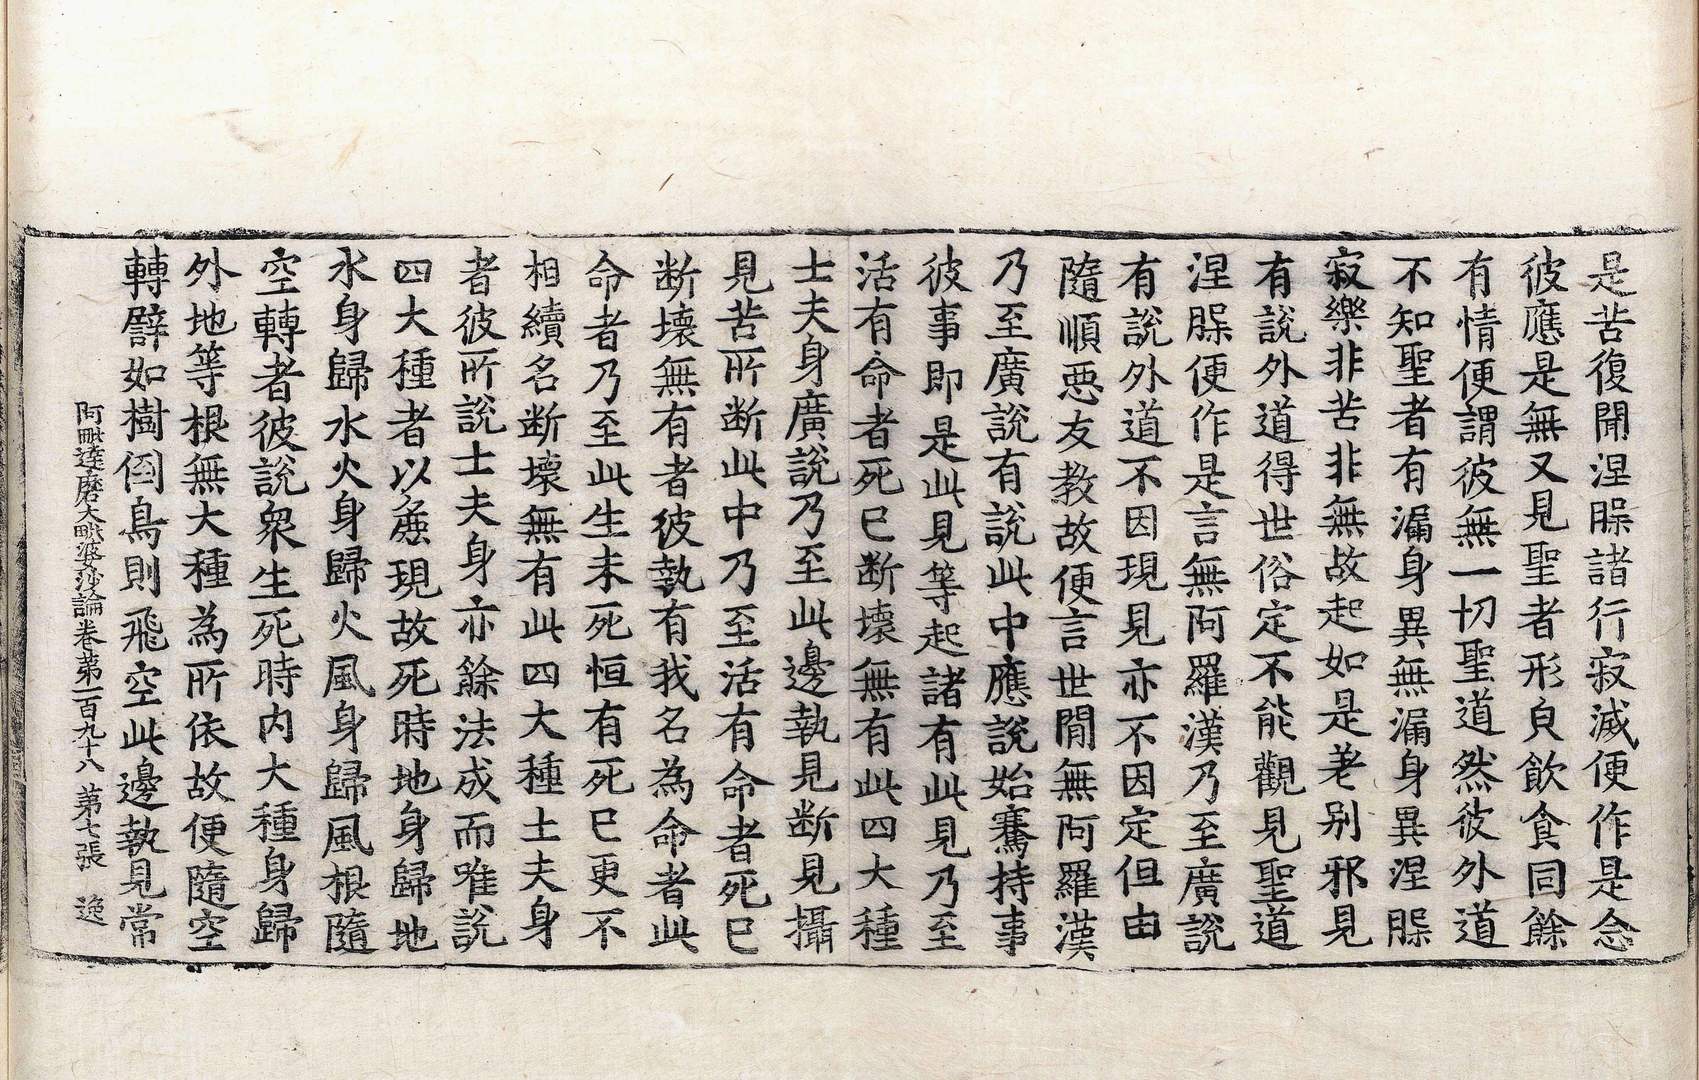 是苦復聞涅槃諸行寂滅便作是念
彼應是無又見聖者形皃飲食同餘
有情便謂彼無一切聖道然彼外道
不知聖者有漏身異無漏身異涅槃
寂樂非苦非無故起如是差別邪見
有說外道得世俗定不能觀見聖道
涅槃便作是言無阿羅漢乃至廣說
有說外道不因現見亦不因定但由
隨順惡友教故便言世閒無阿羅漢
乃至廣說有說此中應說始騫持事
彼事即是此見等起諸有此見乃至
活有命者死已断壞無有此四大種
士夫身廣說乃至此邊執見断見攝
見苦所断此中乃至活有命者死已
断壞無有者彼執有我名為命者此
命者乃至此生未死恒有死已更不
相續名断壞無有此四大種士夫身
者彼所說士夫身亦餘法成而唯說
四大種者以麁現故死時地身歸地
水身歸水火身歸火風身歸風根隨
空轉者彼說衆生死時內大種身歸
外地等根無大種為所依故便隨空
轉譬如樹倒鳥則飛空此邊執見常
阿毗達磨大毗婆沙論卷第一百九十八 第七張 逸